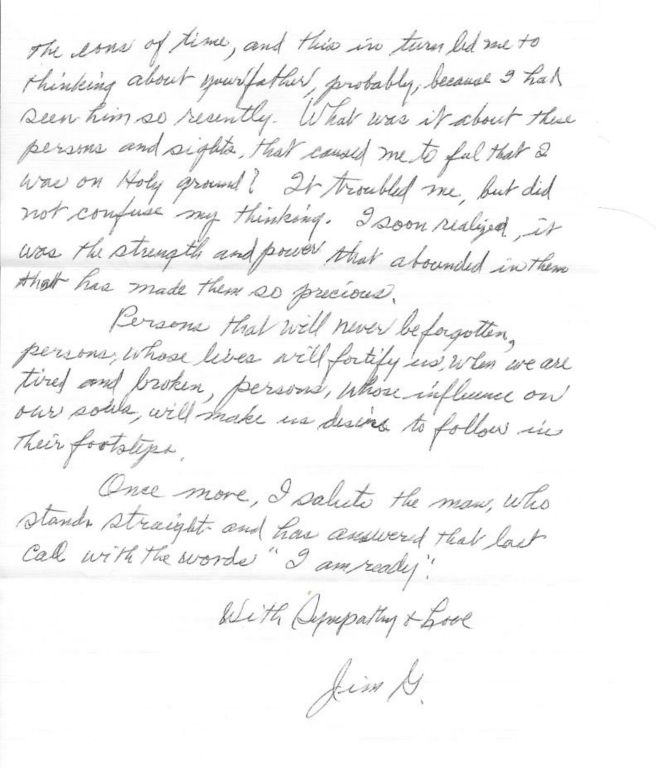 the eons of time, and this in turn led me to
thinking about your father, probably, because I had
seen him so recently. What was it about these
persons and sights, that caused me to feel that I
was on Holy ground? It troubled me, but did
not confuse my thinking. I soon realized, it
was the strength and power that abounded in them
that has made them so precious.
Persons that will never be forgotten,
persons, whose lives will fortify us, when we are
tired and broken, persons, whose influence on
our souls, will make us desire to follow in
their footsteps.
Once more, I salute the man, who
stands straight and has answered that last
call with the words "I am ready".
With Sympathy & Love
Jim G.